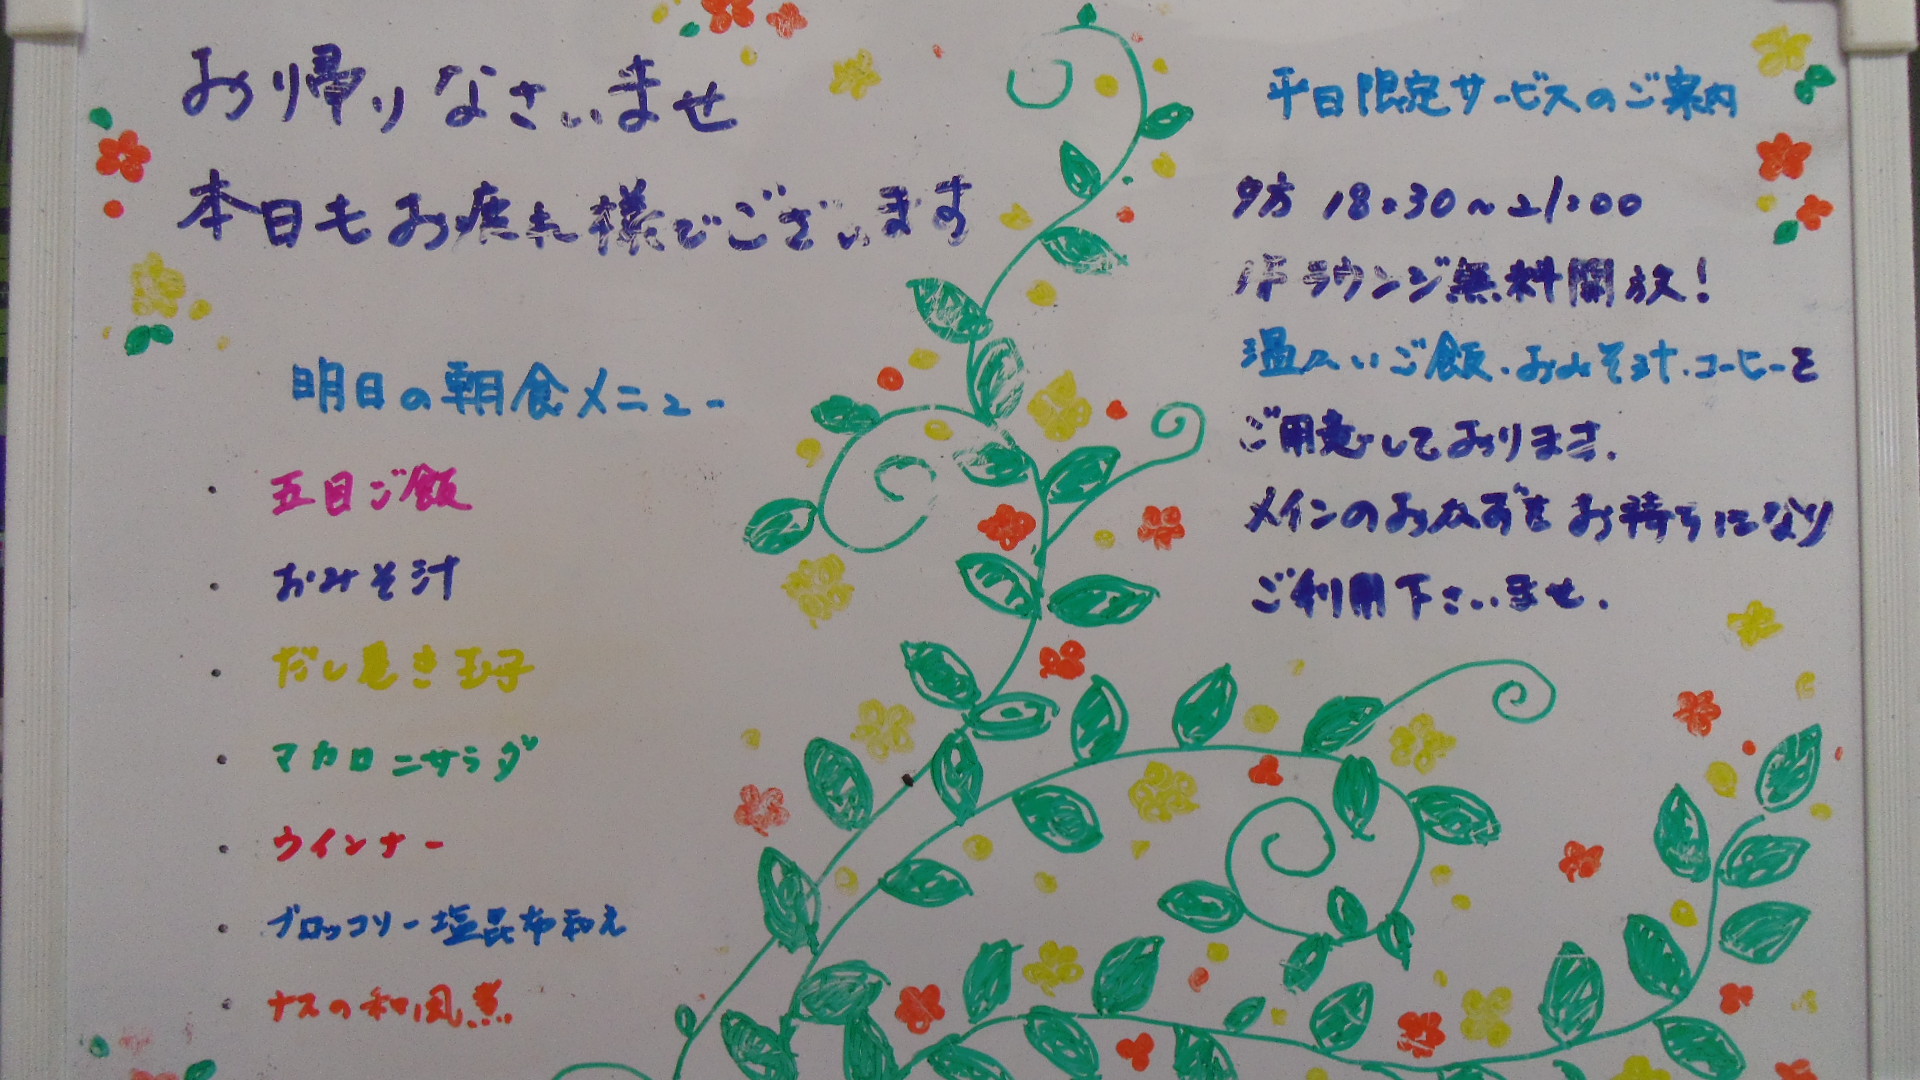 お帰りなさいませ
本日もお疲れ様でございます
明日の朝食メニュー
・ 五目ご飯
・ おみそ汁
・ だし巻き玉子
・ マカロニサラダ
・ ウインナー
・ ブロッコリー塩昆布和え
・ ナスの和風煮
平日限定サービスのご案内
夕方 18:30~21:00
1Fラウンジ無料開放!
温かいご飯.おみそ汁.コーヒーを
ご用意しております.
メインのおかずをお持ちになり
ご利用下さいませ.